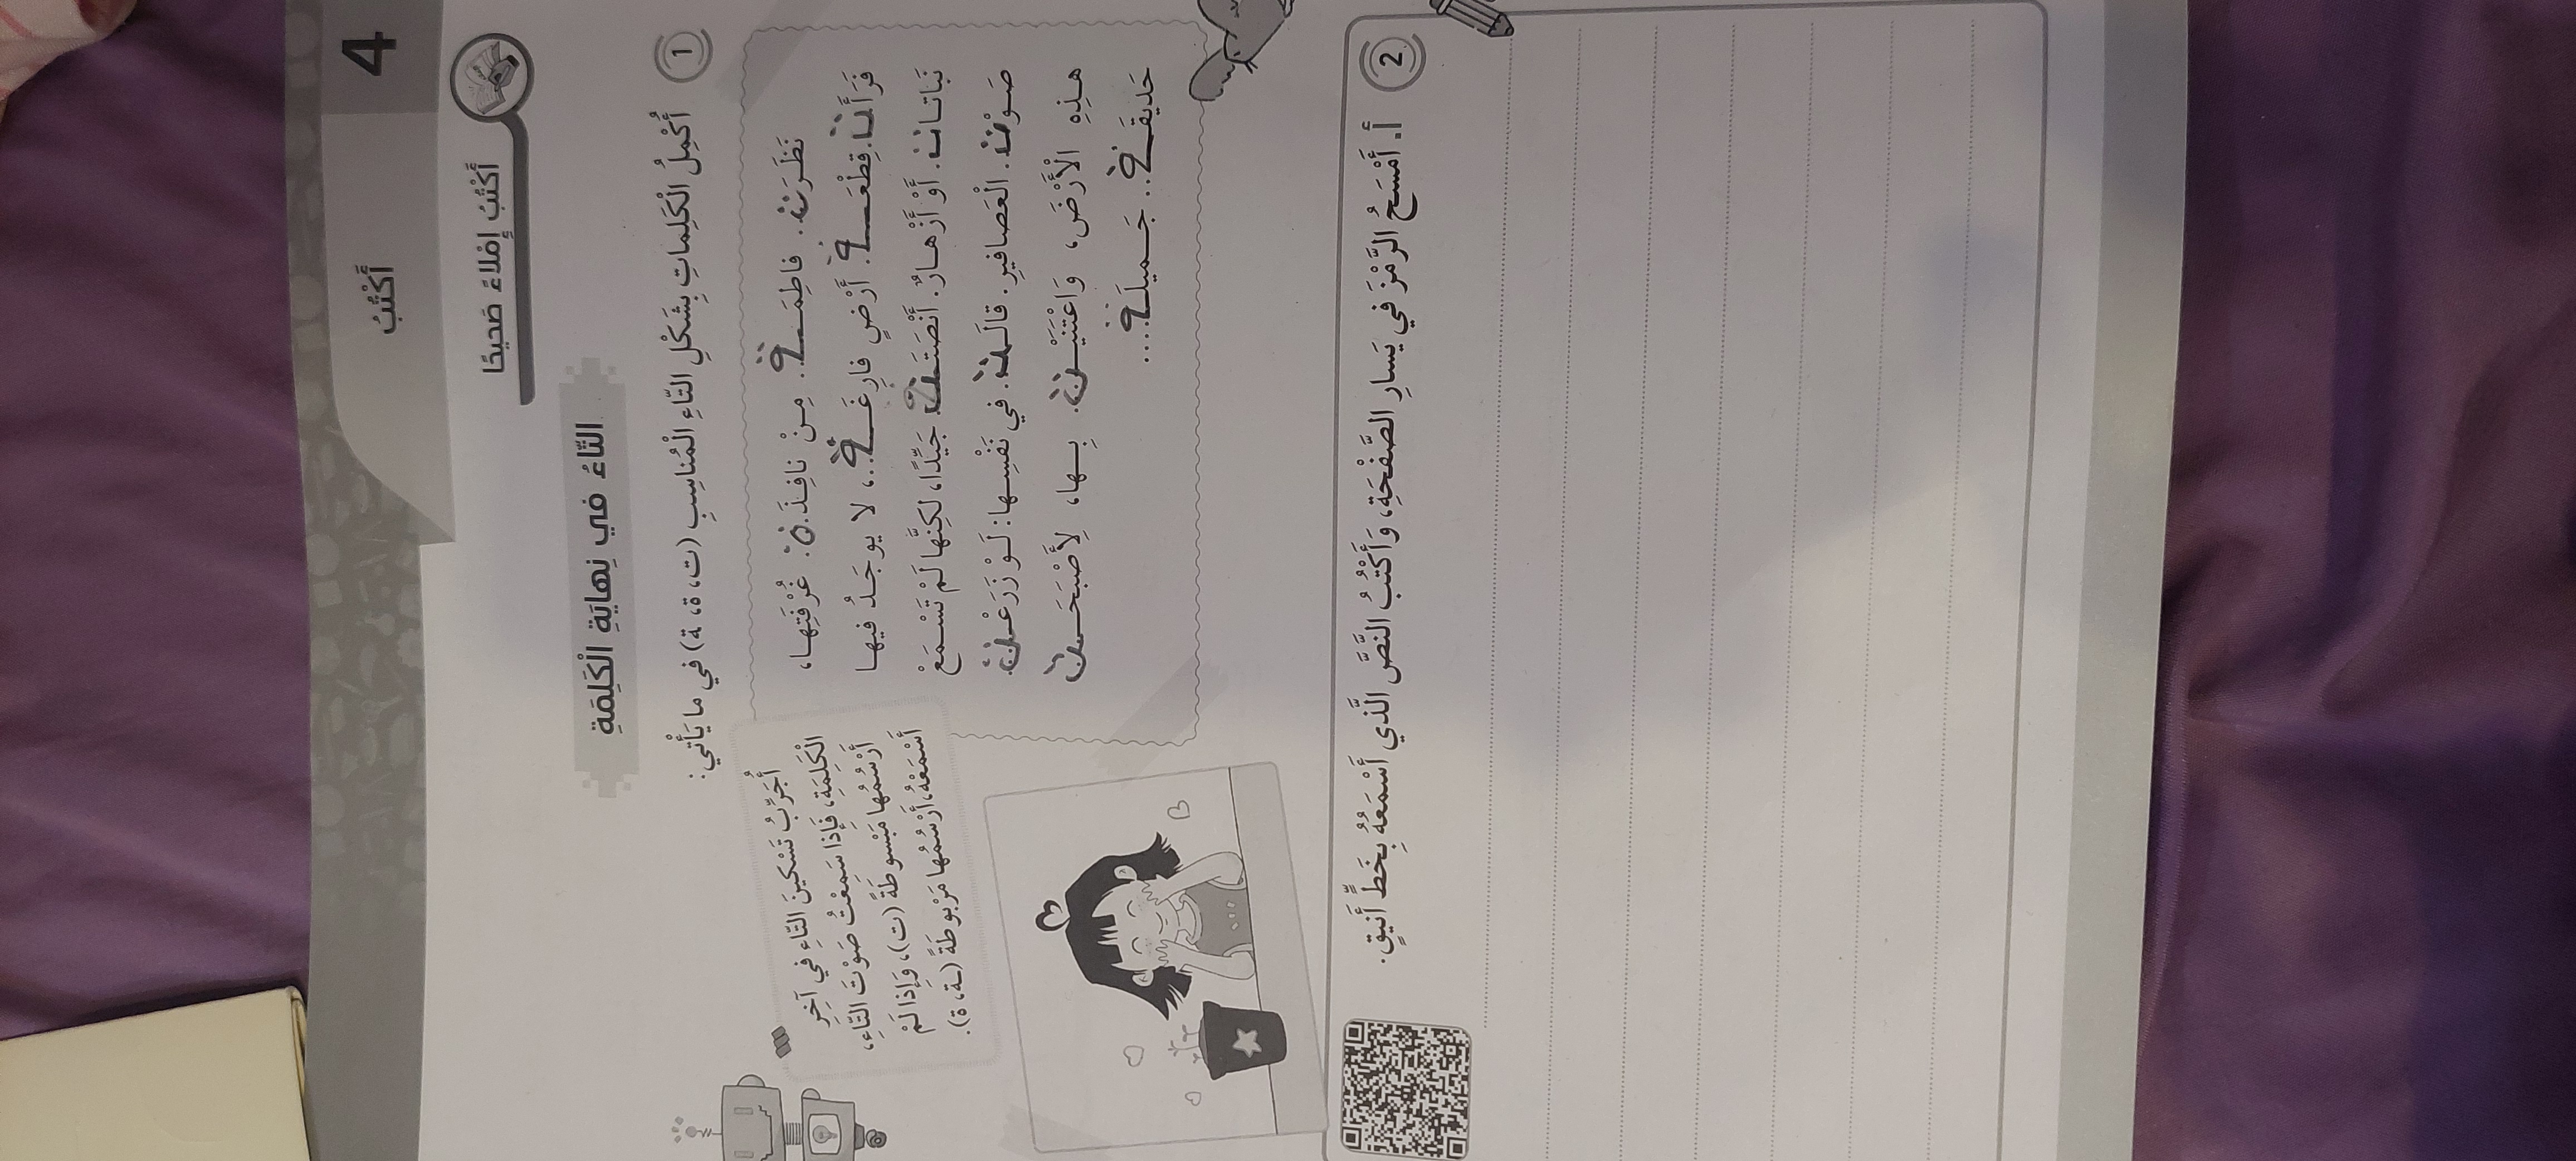 4
أَكْتُبُ
أَكْتُبُ إِمْلاءً صَحيحًا
التّاءُ في نِهايَةِ الْكَلِمَةِ
1 أُكْمِلُ الْكَلِماتِ بِشَكْلِ التّاءِ الْمُناسِبِ (ت، ة، ـة) في ما يَأْتي:
نَظَرَتْ فاطِمَـة مِنْ نافِذَة غُرْفَتِهـا،
فَرَأَت قِطْعَـة أَرْضٍ فارِغَـة، لا يوجَـدُ فيهـا
نَبَاتـات أَوْ أَزْهـارٌ. أَنْصَتَـت جَيِّدًا، لكِنَّها لَمْ تَسْـمَعْ
صَـوْت الْعَصافيرِ. قالَـت في نَفْسِـها: لَـوْ زَرَعْـت
هـذِهِ الْأَرْضَ، وَاعْتَنَيْـت بِـها، لِأَصْبَحَـت
حَديقَـة جَـميلَـة
أُجَرِّبُ تَسْكينَ التّاءِ في آخِرِ
الْكَلِمَةِ، فَإِذا سَمِعْتُ صَوْتَ التّاءِ،
أَرْسُمُها مَبْسوطَةً (ت)، وَإِذا لَمْ
أَسْمَعْهُ، أَرْسُمُها مَرْبوطَةً (ـة، ة).
2 أ. أَمْسَحُ الرَّمْزَ في يَسارِ الصَّفْحَةِ، وَأَكْتُبُ النَّصَّ الَّذي أَسْمَعُهُ بِخَطٍّ أَنيقٍ.